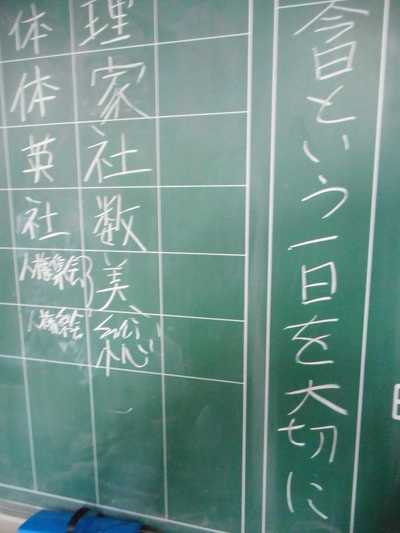 今日という一日を大切に
理
家
社
数
美
総
体
体
英
社
人権集会
人権集会